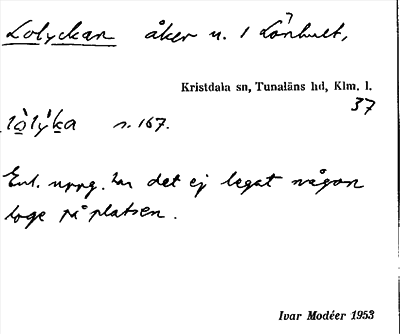 Lolyckan åker n. 1 Lönhult,
Kristdala sn, Tunaläns hd, Klm. l.
37
s. 167.
Enl. uppg. har det ej legat någon
loge på platsen.
Ivar Modéer 1953